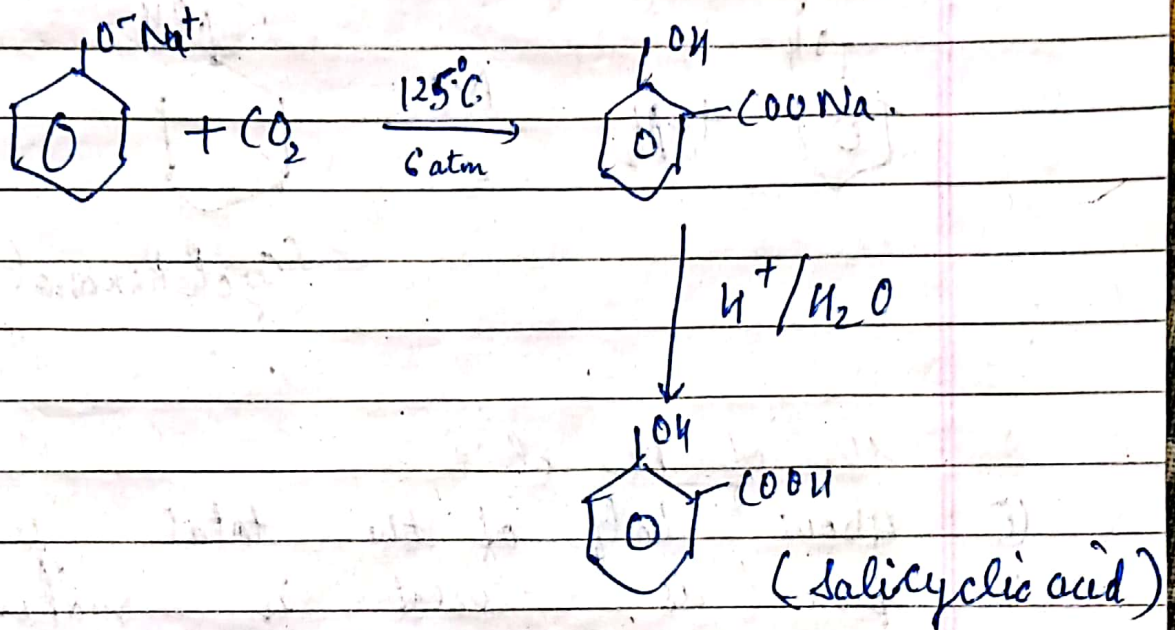 O⁻Na⁺
+ CO₂
125°C
6 atm
OH
COONa.
H⁺/H₂O
OH
COOH
(Salicyclic acid)